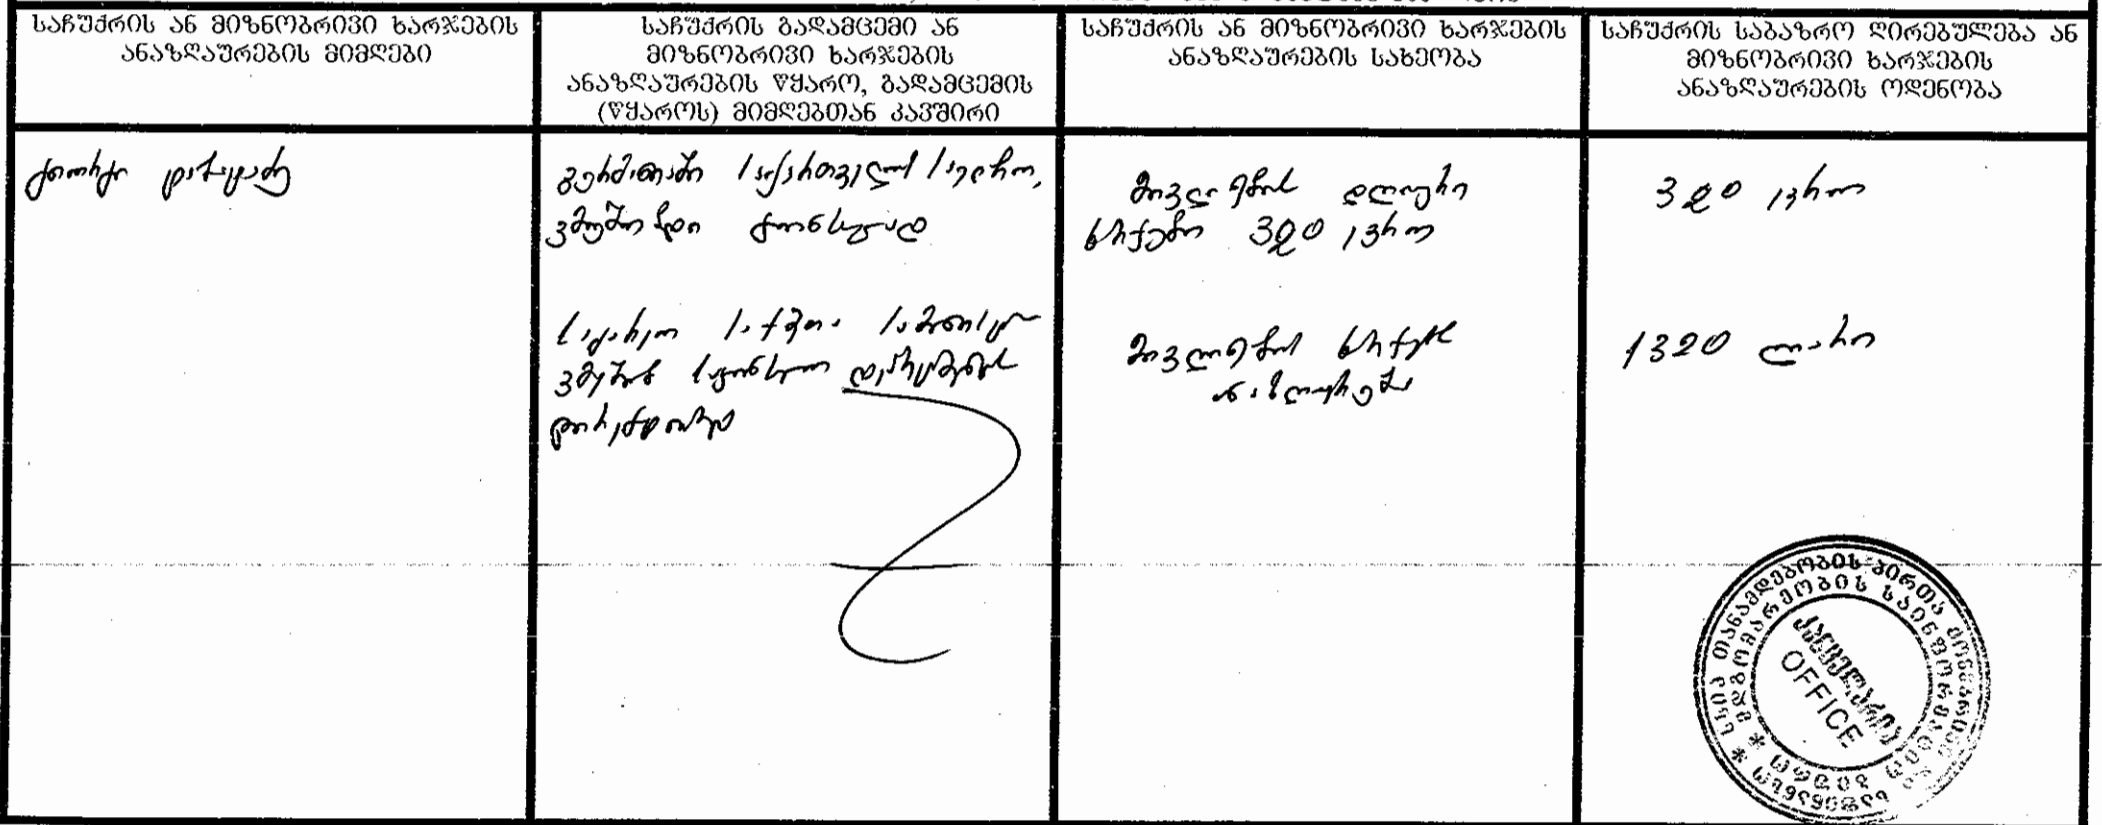 საჩუქრის ან მიზნობრივი ხარჯების
ანაზღაურების მიმღები
საჩუქრის გადამცემი ან
მიზნობრივი ხარჯების
ანაზღაურების წყარო, გადამცემის
(წყაროს) მიმღებთან კავშირი
საჩუქრის ან მიზნობრივი ხარჯების
ანაზღაურების სახეობა
საჩუქრის საბაზრო ღირებულება ან
მიზნობრივი ხარჯების
ანაზღაურების ოდენობა
საქართველოს საელჩო,
ვმუშაობდი კონსულად
მივლინების დღიური
ხარჯები 320 ევრო
320 ევრო
საგარეო საქმეთა სამინისტრო
ვმუშაობ საკონსულო დეპარტამენტის
დირექტორად
მივლინების ხარჯების
ანაზღაურება
1320 ლარი
კანცელარია
OFFICE